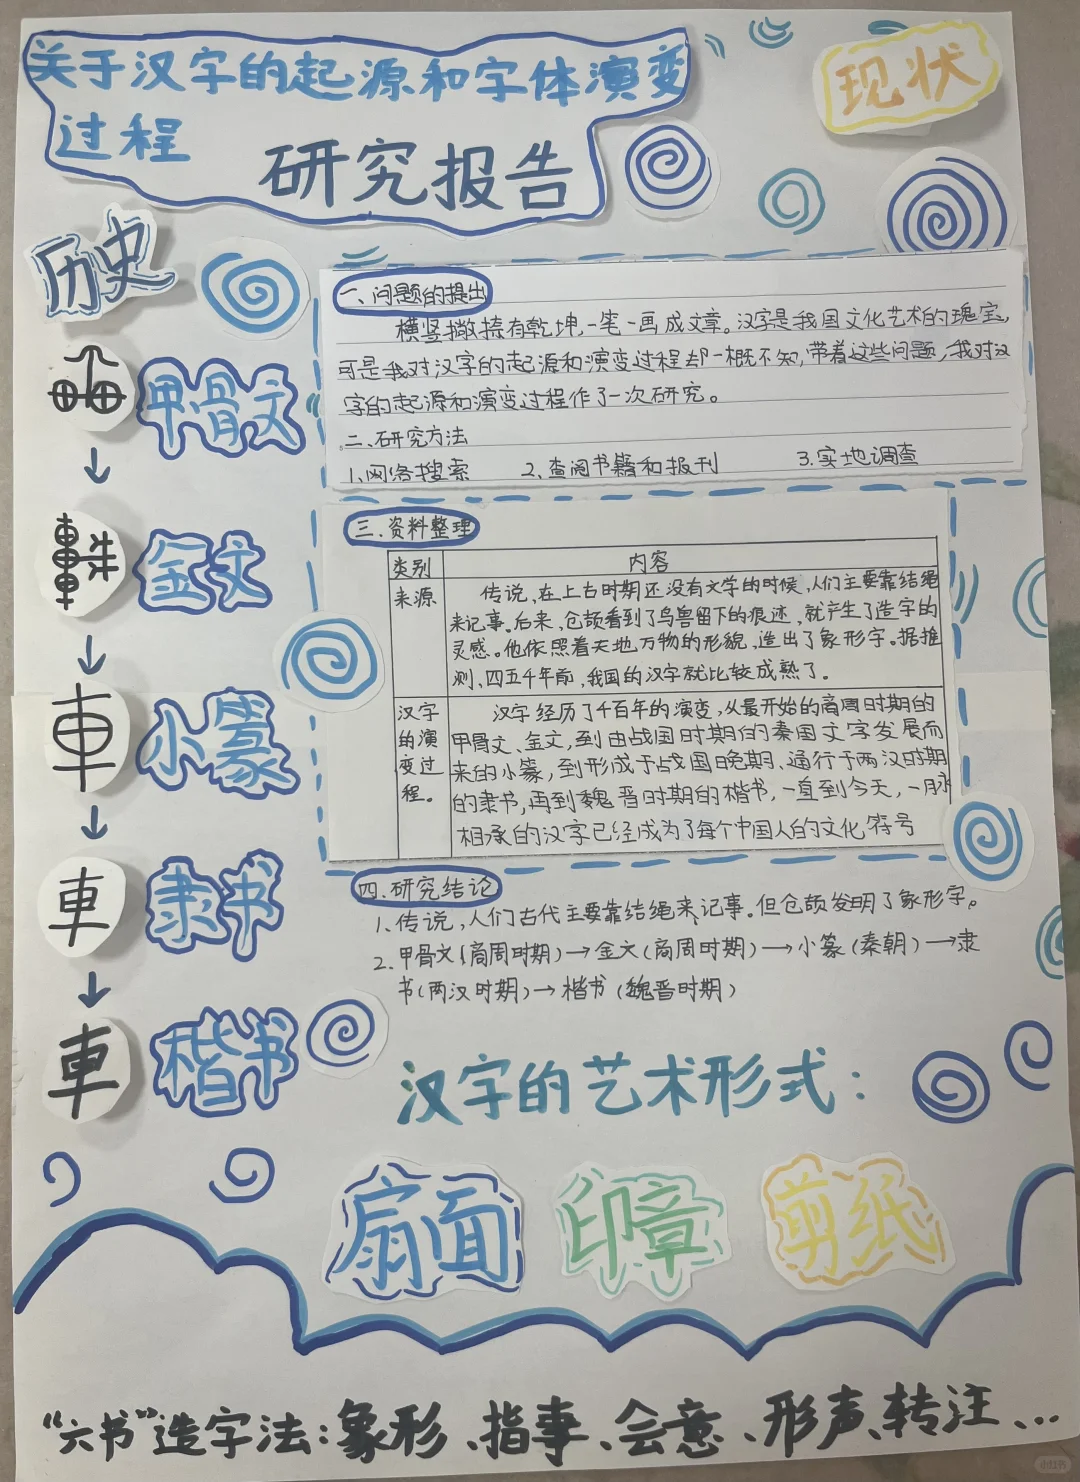 关于汉字的起源和字体演变
过程
研究报告
现状
历史
甲骨文
金文
小篆
車
隶书
車
楷书
車
一、问题的提出
横竖撇捺有乾坤,一笔一画成文章。汉字是我国文化艺术的瑰宝,
可是我对汉字的起源和演变过程却一概不知,带着这些问题,我对汉
字的起源和演变过程作了一次研究。
二、研究方法
1.网络搜索 2.查阅书籍和报刊 3.实地调查
三.资料整理
类别 内容
来源 传说,在上古时期还没有文字的时候,人们主要靠结绳
来记事。后来,仓颉看到了鸟兽留下的痕迹,就产生了造字的
灵感。他依照着天地万物的形貌,造出了象形字。据推
测,四五千年前,我国的汉字就比较成熟了。
汉字的演变过程。
汉字经历了千百年的演变,从最开始的商周时期的
甲骨文、金文,到由战国时期的秦国文字发展而
来的小篆,到形成于战国晚期、通行于两汉时期
的隶书,再到魏晋时期的楷书,一直到今天,一脉
相承的汉字已经成为了每个中国人的文化符号
四.研究结论
1.传说,人们古代主要靠结绳来记事。但仓颉发明了象形字。
2.甲骨文(商周时期)→金文(商周时期)→小篆(秦朝)→隶
书(两汉时期)→楷书(魏晋时期)
汉字的艺术形式:
扇面 印章 剪纸
“六书”造字法:象形、指事、会意、形声、转注、...
小红书